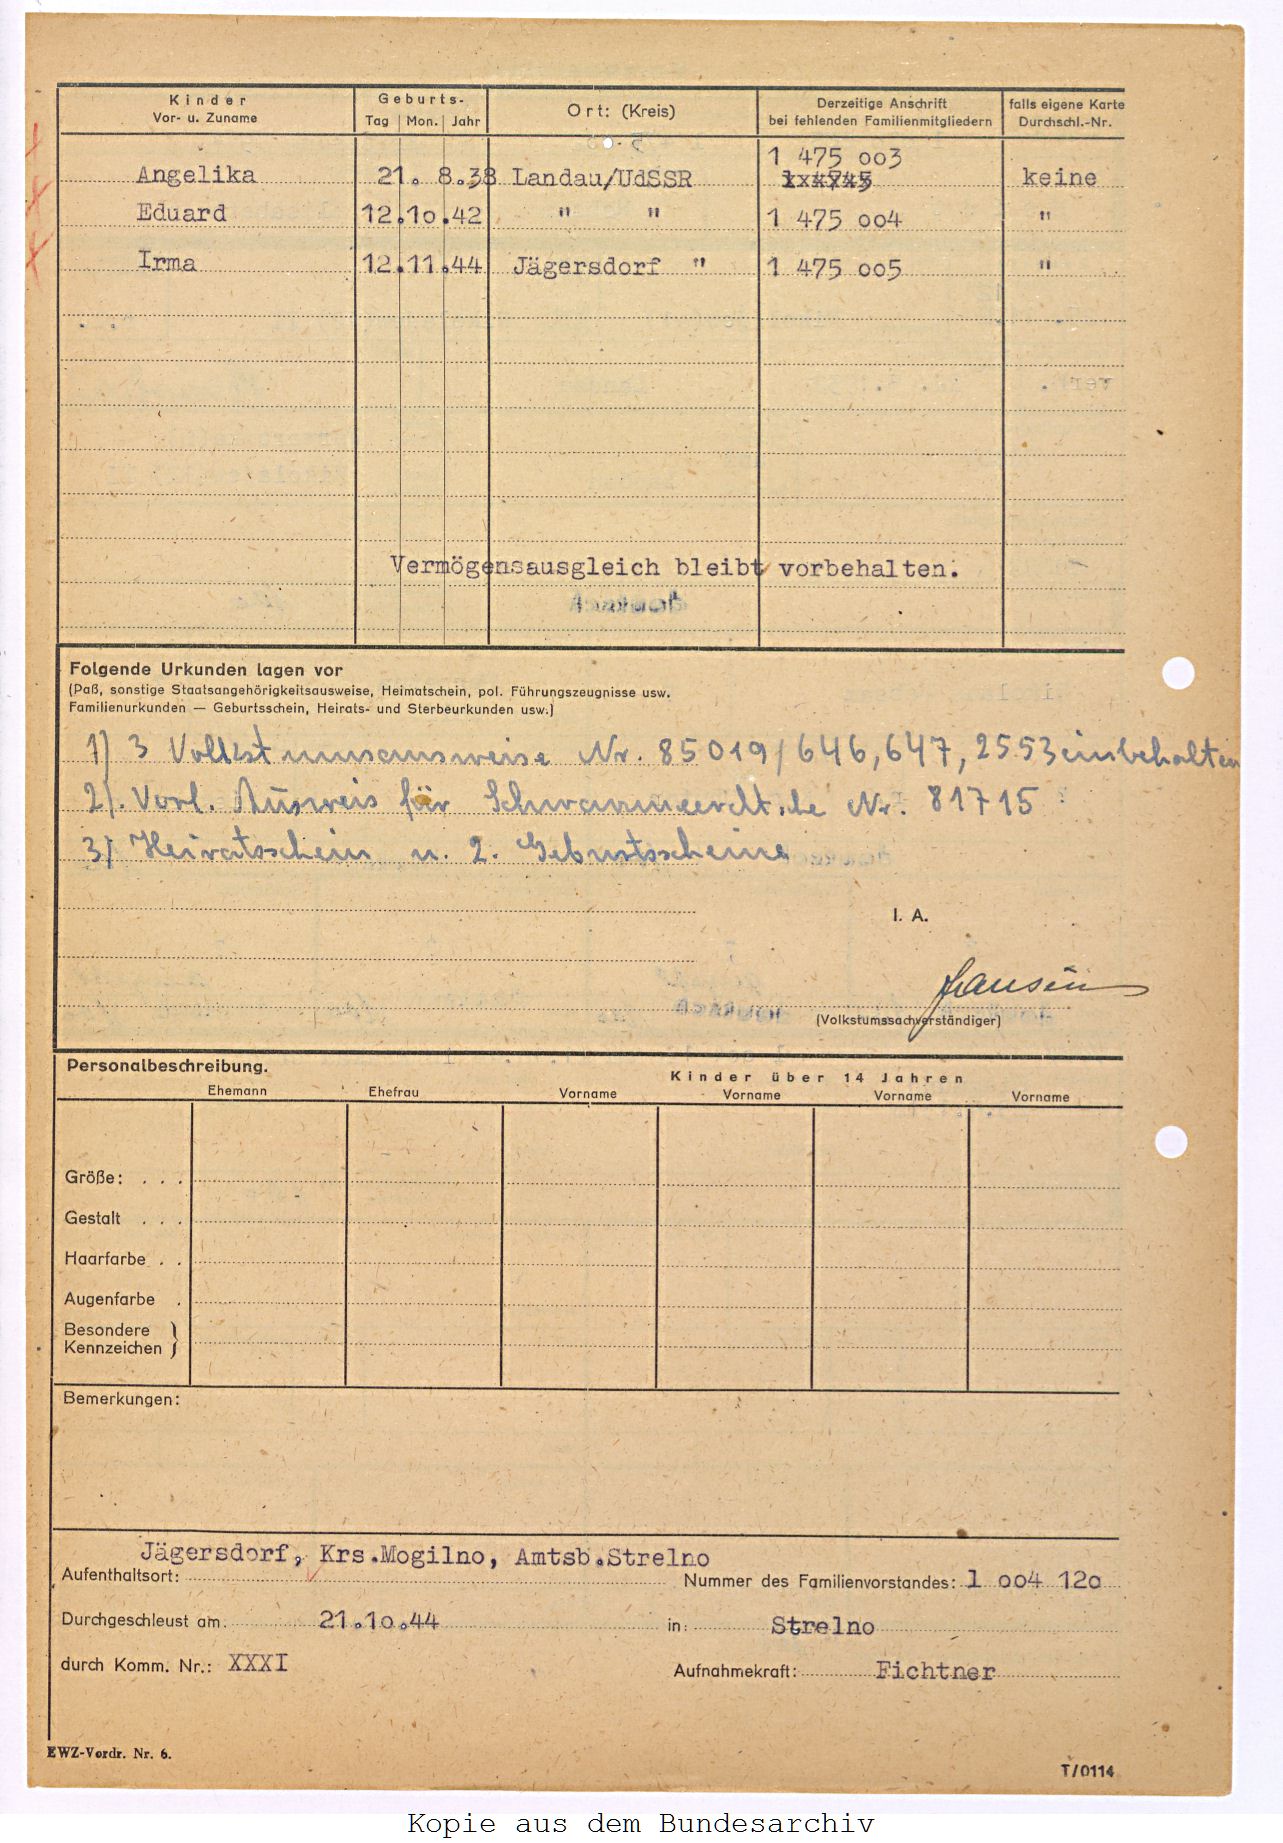 Kinder
Vor- u. Zuname
Geburts-
Tag Mon. Jahr
Ort: (Kreis)
Derzeitige Anschrift
bei fehlenden Familienmitgliedern
falls eigene Karte
Durchschl.-Nr.
1 475 oo3
Angelika 21. 8.38 Landau/UdSSR keine
Eduard 12.1o.42 " " 1 475 oo4 "
Irma 12.11.44 Jägersdorf " 1 475 oo5 "
Vermögensausgleich bleibt vorbehalten.
Folgende Urkunden lagen vor
(Paß, sonstige Staatsangehörigkeitsausweise, Heimatschein, pol. Führungszeugnisse usw.
Familienurkunden — Geburtsschein, Heirats- und Sterbeurkunden usw.)
1) 3 Volkstumsausweise Nr. 85019/646, 647, 2553 einbehalten
2). Vorl. Ausweis für Schwarzmeerdt.he Nr. 81715
3) Heiratsschein u. 2. Geburtsscheine
I. A.
Hansen
(Volkstumssachverständiger)
Personalbeschreibung.
Kinder über 14 Jahren
Ehemann Ehefrau Vorname Vorname Vorname Vorname
Größe: . . .
Gestalt . . .
Haarfarbe . .
Augenfarbe .
Besondere
Kennzeichen }
Bemerkungen:
Jägersdorf, Krs.Mogilno, Amtsb.Strelno
Aufenthaltsort: Nummer des Familienvorstandes: 1 oo4 12o
Durchgeschleust am: 21.1o.44 in: Strelno
durch Komm. Nr.: XXXI Aufnahmekraft: Fichtner
EWZ-Vordr. Nr. 6.
T/0114
Kopie aus dem Bundesarchiv